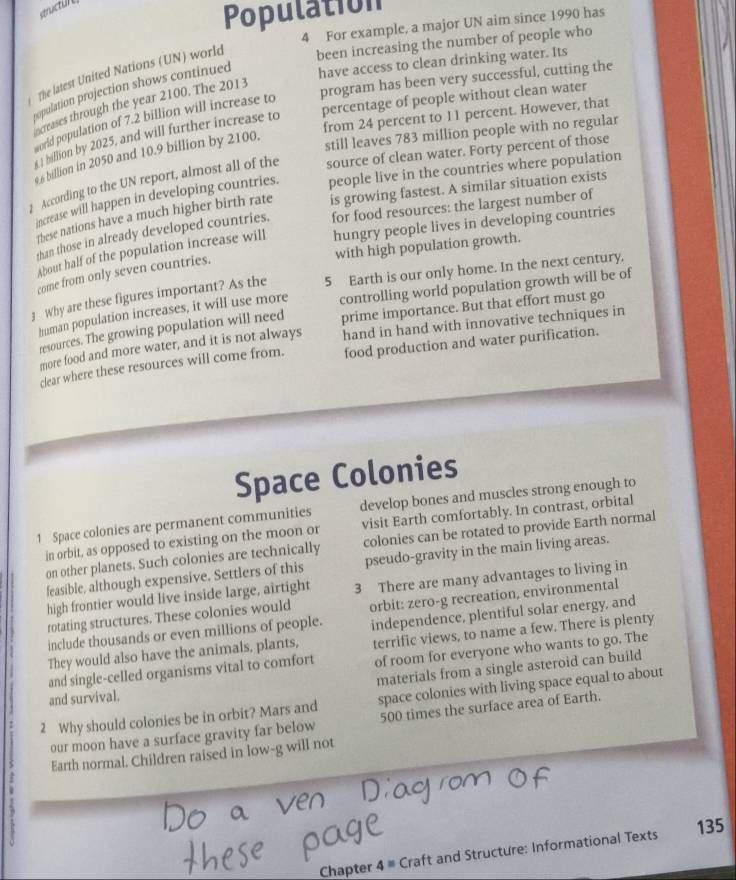 Population
1 The latest United Nations (UN) world
population projection shows continued
increases through the year 2100. The 2013
world population of 7.2 billion will increase to
8.1 billion by 2025, and will further increase to
9.6 billion in 2050 and 10.9 billion by 2100.
2 According to the UN report, almost all of the
increase will happen in developing countries.
These nations have a much higher birth rate
than those in already developed countries.
About half of the population increase will
come from only seven countries.
3 Why are these figures important? As the
human population increases, it will use more
resources. The growing population will need
more food and more water, and it is not always
clear where these resources will come from.
4 For example, a major UN aim since 1990 has
been increasing the number of people who
have access to clean drinking water. Its
program has been very successful, cutting the
percentage of people without clean water
from 24 percent to 11 percent. However, that
still leaves 783 million people with no regular
source of clean water. Forty percent of those
people live in the countries where population
is growing fastest. A similar situation exists
for food resources: the largest number of
hungry people lives in developing countries
with high population growth.
5 Earth is our only home. In the next century,
controlling world population growth will be of
prime importance. But that effort must go
hand in hand with innovative techniques in
food production and water purification.
Space Colonies
1 Space colonies are permanent communities
in orbit, as opposed to existing on the moon or
on other planets. Such colonies are technically
feasible, although expensive. Settlers of this
high frontier would live inside large, airtight
rotating structures. These colonies would
include thousands or even millions of people.
They would also have the animals, plants,
and single-celled organisms vital to comfort
and survival.
2 Why should colonies be in orbit? Mars and
our moon have a surface gravity far below
Earth normal. Children raised in low-g will not
develop bones and muscles strong enough to
visit Earth comfortably. In contrast, orbital
colonies can be rotated to provide Earth normal
pseudo-gravity in the main living areas.
3 There are many advantages to living in
orbit: zero-g recreation, environmental
independence, plentiful solar energy, and
terrific views, to name a few. There is plenty
of room for everyone who wants to go. The
materials from a single asteroid can build
space colonies with living space equal to about
500 times the surface area of Earth.
Do a ven Diagrom of
these page
Chapter 4 ■ Craft and Structure: Informational Texts 135